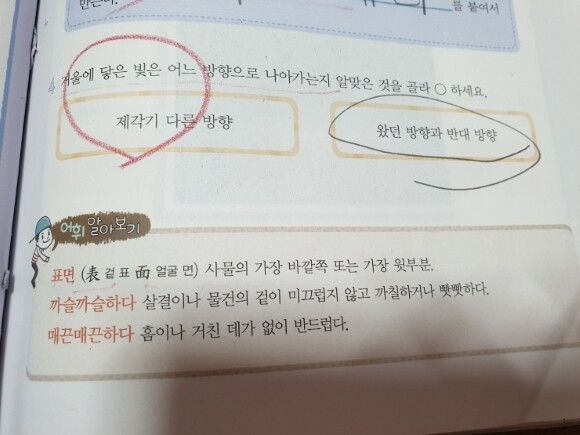 만든다.
를 붙여서
거울에 닿은 빛은 어느 방향으로 나아가는지 알맞은 것을 골라 ○ 하세요.
제각기 다른 방향
왔던 방향과 반대 방향
어휘 알아보기
표면 (表 겉 표 面 얼굴 면) 사물의 가장 바깥쪽 또는 가장 윗부분.
까슬까슬하다 살결이나 물건의 겉이 미끄럽지 않고 까칠하거나 빳빳하다.
매끈매끈하다 흠이나 거친 데가 없이 반드럽다.